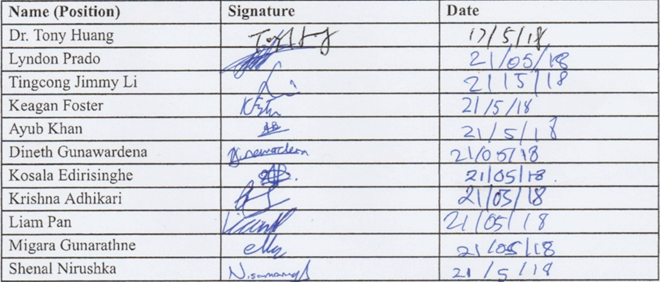 Name (Position) Signature Date
Dr. Tony Huang 17/5/18
Lyndon Prado 21/05/18
Tingcong Jimmy Li 21/5/18
Keagan Foster 21/5/18
Ayub Khan AB 21/5/18
Dineth Gunawardena 21/05/18
Kosala Edirisinghe 21/05/18.
Krishna Adhikari 21/05/18
Liam Pan 21/05/18
Migara Gunarathne 21/05/18
Shenal Nirushka 21/5/18